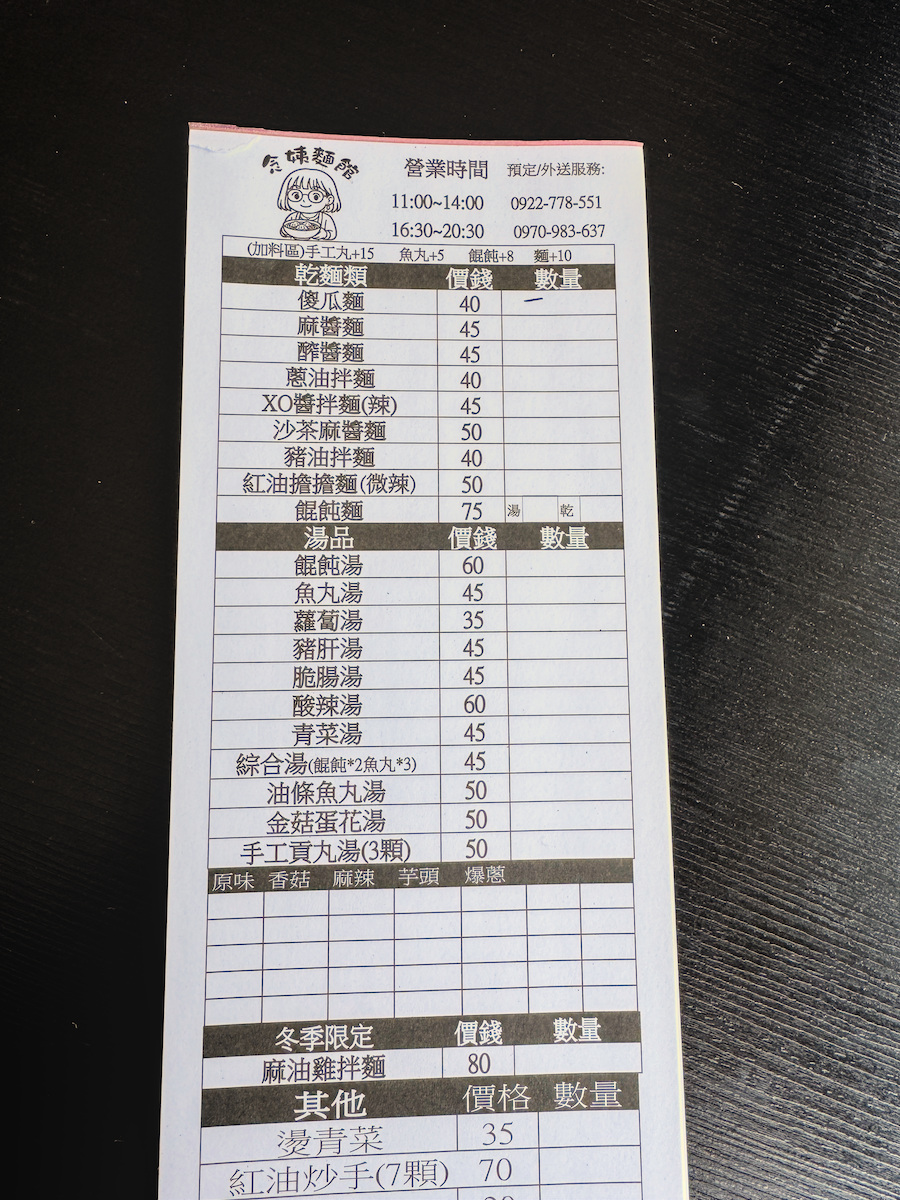 念姨麵館
營業時間 預定/外送服務:
11:00~14:00 0922-778-551
16:30~20:30 0970-983-637
(加料區)手工丸+15 魚丸+5 餛飩+8 麵+10
乾麵類 價錢 數量
傻瓜麵 40
麻醬麵 45
醡醬麵 45
蔥油拌麵 40
XO醬拌麵(辣) 45
沙茶麻醬麵 50
豬油拌麵 40
紅油擔擔麵(微辣) 50
餛飩麵 75 湯 乾
湯品 價錢 數量
餛飩湯 60
魚丸湯 45
蘿蔔湯 35
豬肝湯 45
脆腸湯 45
酸辣湯 60
青菜湯 45
綜合湯(餛飩*2魚丸*3) 45
油條魚丸湯 50
金菇蛋花湯 50
手工貢丸湯(3顆) 50
原味 香菇 麻辣 芋頭 爆蔥
冬季限定 價錢 數量
麻油雞拌麵 80
其他 價格 數量
燙青菜 35
紅油炒手(7顆) 70